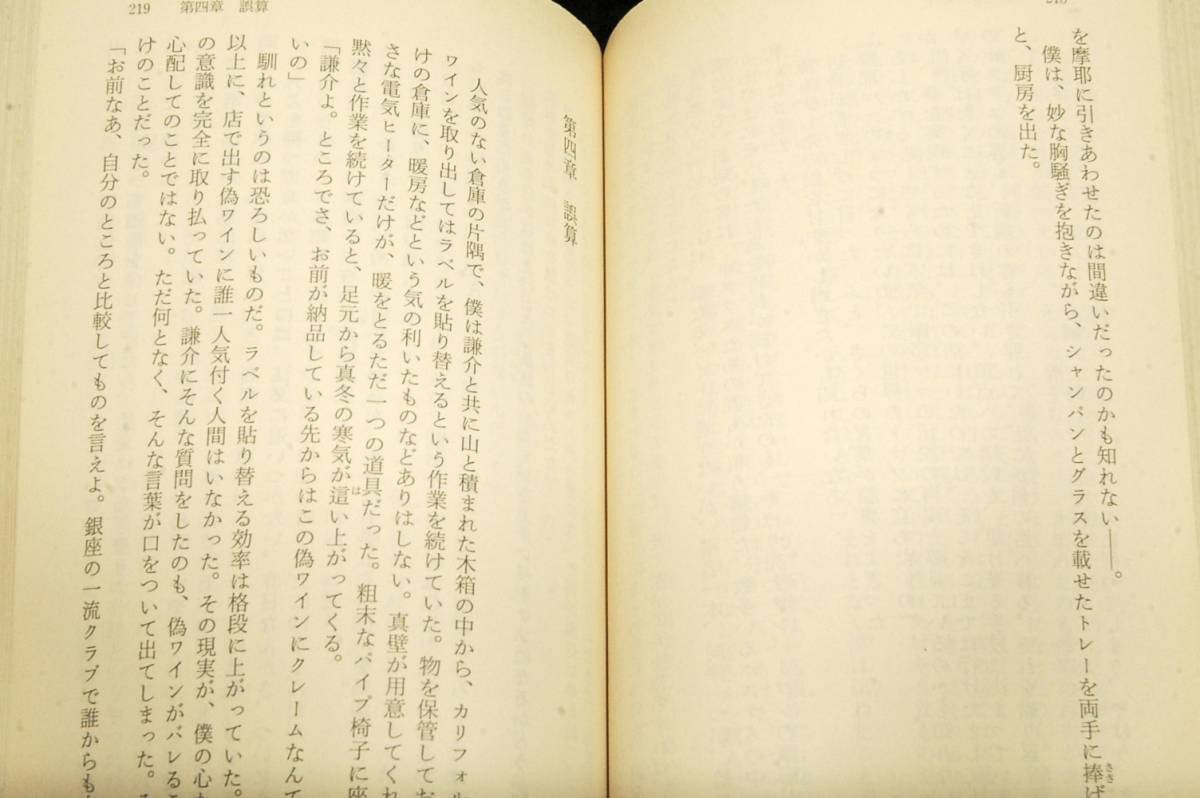 を摩耶に引きあわせたのは間違いだったのかも知れない――。
僕は、妙な胸騒ぎを抱きながら、シャンパンとグラスを載せたトレーを両手に捧げ
と、厨房を出た。
219 第四章 誤算
第四章 誤算
人気のない倉庫の片隅で、僕は謙介と共に山と積まれた木箱の中から、カリフォル
ワインを取り出してはラベルを貼り替えるという作業を続けていた。物を保管してお
けの倉庫に、暖房などという気の利いたものなどありはしない。真壁が用意してくれ
さな電気ヒーターだけが、暖をとるただ一つの道具だった。粗末なパイプ椅子に座
黙々と作業を続けていると、足元から真冬の寒気が這い上がってくる。
「謙介よ。ところでさ、お前が納品している先からはこの偽ワインにクレームなんて
いの」
馴れというのは恐ろしいものだ。ラベルを貼り替える効率は格段に上がっていた。
以上に、店で出す偽ワインに誰一人気付く人間はいなかった。その現実が、僕の心か
の意識を完全に取り払っていた。謙介にそんな質問をしたのも、偽ワインがバレるこ
心配してのことではない。ただ何となく、そんな言葉が口をついて出てしまった。
けのことだった。
「お前なあ、自分のところと比較してものを言えよ。銀座の一流クラブで誰からも